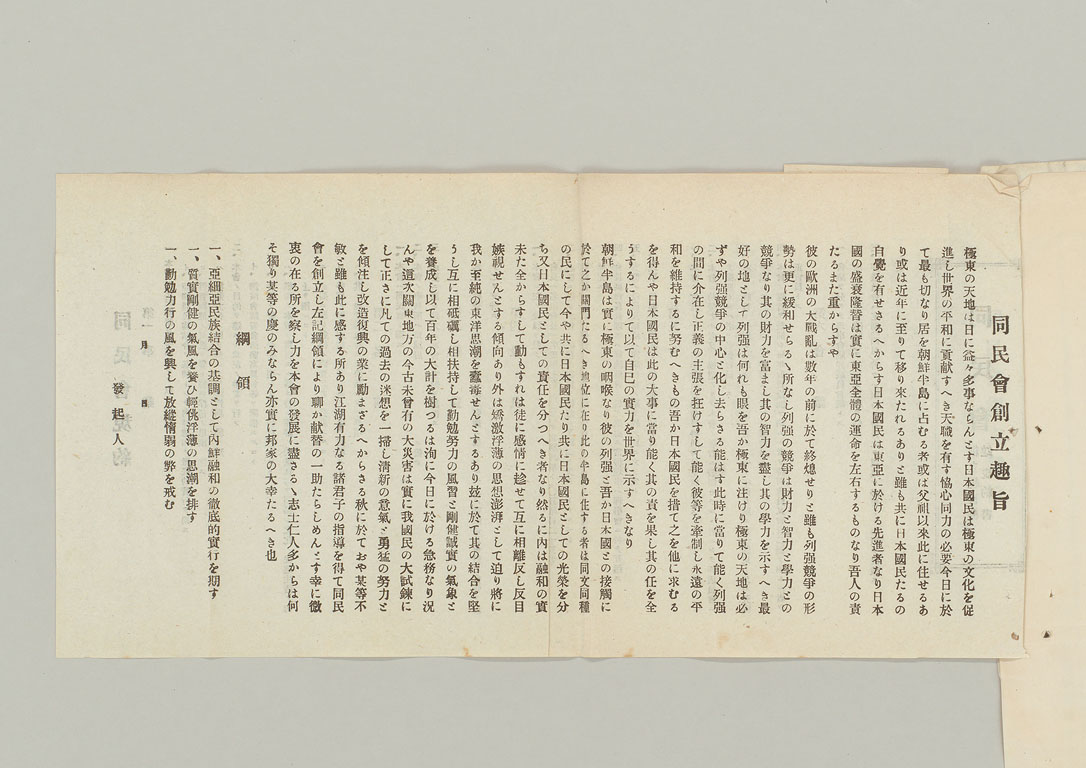 同民會創立趣旨
極東の天地は日に益々多事ならんとす日本國民は極東の文化を促
進し世界の平和に貢献すへき天職を有す恊心同力の必要今日に於
て最も切なり居を朝鮮半島に占むる者或は父祖以來此に住せるあ
り或は近年に至りて移り來たれるありと雖も共に日本國民たるの
自覺を有せさるへからす日本國民は東亞に於ける先進者なり日本
國の盛衰隆替は實に東亞全體の運命を左右するものなり吾人の責
たるまた重からすや
彼の歐洲の大戰亂は數年の前に於て終熄せりと雖も列强競爭の形
勢は更に緩和せらるゝ所なし列强の競爭は財力と智力と學力との
競爭なり其の財力を富まし其の智力を盡し其の學力を示すへき最
好の地として列强は何れも眼を吾か極東に注けり極東の天地は必
すや列强競爭の中心と化し去らさる能はす此時に當りて能く列强
の間に介在し正義の主張を狂けすして能く彼等を牽制し永遠の平
和を維持するに努むへきもの吾か日本國民を措て之を他に求むる
を得んや日本國民は此の大事に當り能く其の責を果し其の任を全
うするによりて以て自己の實力を世界に示すへきなり
朝鮮半島は實に極東の咽喉なり彼の列强と吾か日本國との接觸に
於て之か關門たるへき地位に在り此の半島に住する者は同文同種
の民にして今や共に日本國民たり共に日本國民としての光榮を分
ち又日本國民としての責任を分つへき者なり然るに内は融和の實
未た全からすして動もすれは徒に感情に趁せて互に相離反し反目
嫉視せんとする傾向あり外は矯激浮薄の思想澎湃として迫り將に
我か至純の東洋思潮を蠹毒せんとするあり玆に於て其の結合を堅
うし互に相砥礪し相扶持して勤勉努力の風習と剛健誠實の氣象と
を養成し以て百年の大計を樹つるは洵に今日に於ける急務なり況
んや這次關東地方の今古未曾有の大災害は實に我國民の大試鍊に
して正さに凡ての過去の迷想を一掃し清新の意氣と勇猛の努力と
を傾注し改造復興の業に勵まざるへからさる秋に於ておや某等不
敏と雖も此に感する所あり江湖有力なる諸君子の指導を得て同民
會を創立し左記綱領により聊か献替の一助たらしめんとす幸に微
衷の在る所を察し力を本會の發展に盡さるゝ志士仁人多からは何
そ獨り某等の慶のみならん亦實に邦家の大幸たるへき也
綱領
一、亞細亞民族結合の基調として内鮮融和の徹底的實行を期す
一、質實剛健の氣風を養ひ輕佻浮薄の思潮を排す
一、勤勉力行の風を興して放縱惰弱の弊を戒む
月 日
發起人